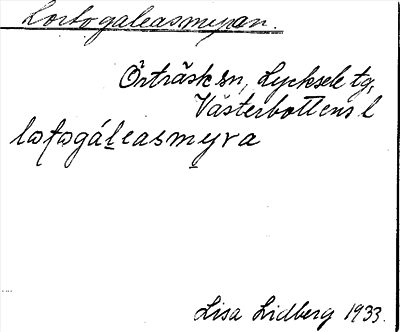 Lortogaleasmyran.
Örträsk sn, Lycksele tg,
Västerbottens l
loţogáḷeasmyra
Lisa Lidberg 1933.